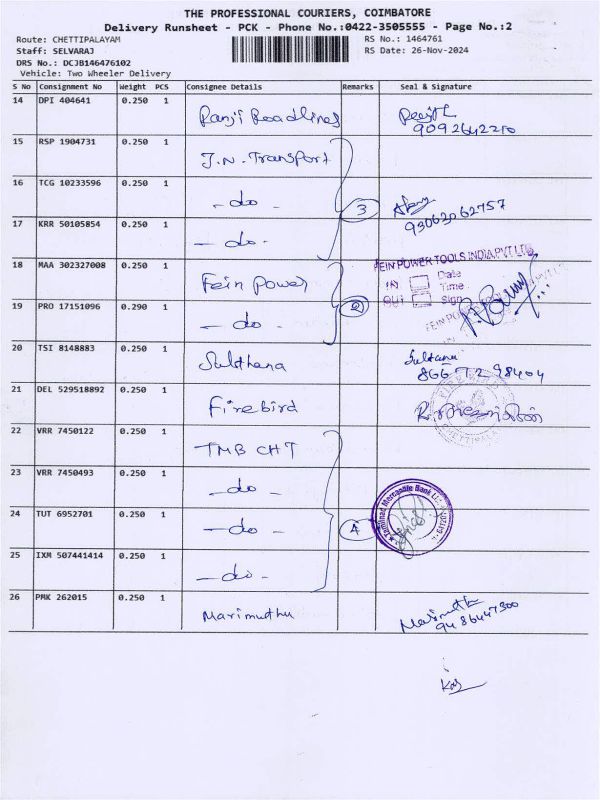 THE PROFESSIONAL COURIERS, COIMBATORE
Delivery Runsheet - PCK - Phone No.:0422-3505555 - Page No.:2
Route: CHETTIPALAYAM
RS No.: 1464761
Staff: SELVARAJ
RS Date: 26-Nov-2024
DRS No.: DCJB146476102
Vehicle: Two Wheeler Delivery
S No Consignment No Weight PCS Consignee Details Remarks Seal & Signature
14 DPI 404641 0.250 1 Ranji Roadlines
9092642210
15 RSP 1904731 0.250 1 J.N. Transport
16 TCG 10233596 0.250 1 - do - 3
9306306 2757
17 KRR 50105854 0.250 1 - do -
18 MAA 302327008 0.250 1 Fein Power FEIN POWER TOOLS INDIA PVT LTD
IN Date
Time
OUT Sign
19 PRO 17151096 0.290 1 - do - 2
20 TSI 8148883 0.250 1 Sulthana Sultanu
866 72 98404
21 DEL 529518892 0.250 1 Firebird
22 VRR 7450122 0.250 1 TMB CHT
23 VRR 7450493 0.250 1 - do -
24 TUT 6952701 0.250 1 - do - 4 Tamilnad Mercantile Bank Ltd
25 IXM 507441414 0.250 1 - do -
26 PMK 262015 0.250 1 Marimuthu Marimuthu
94 86447300